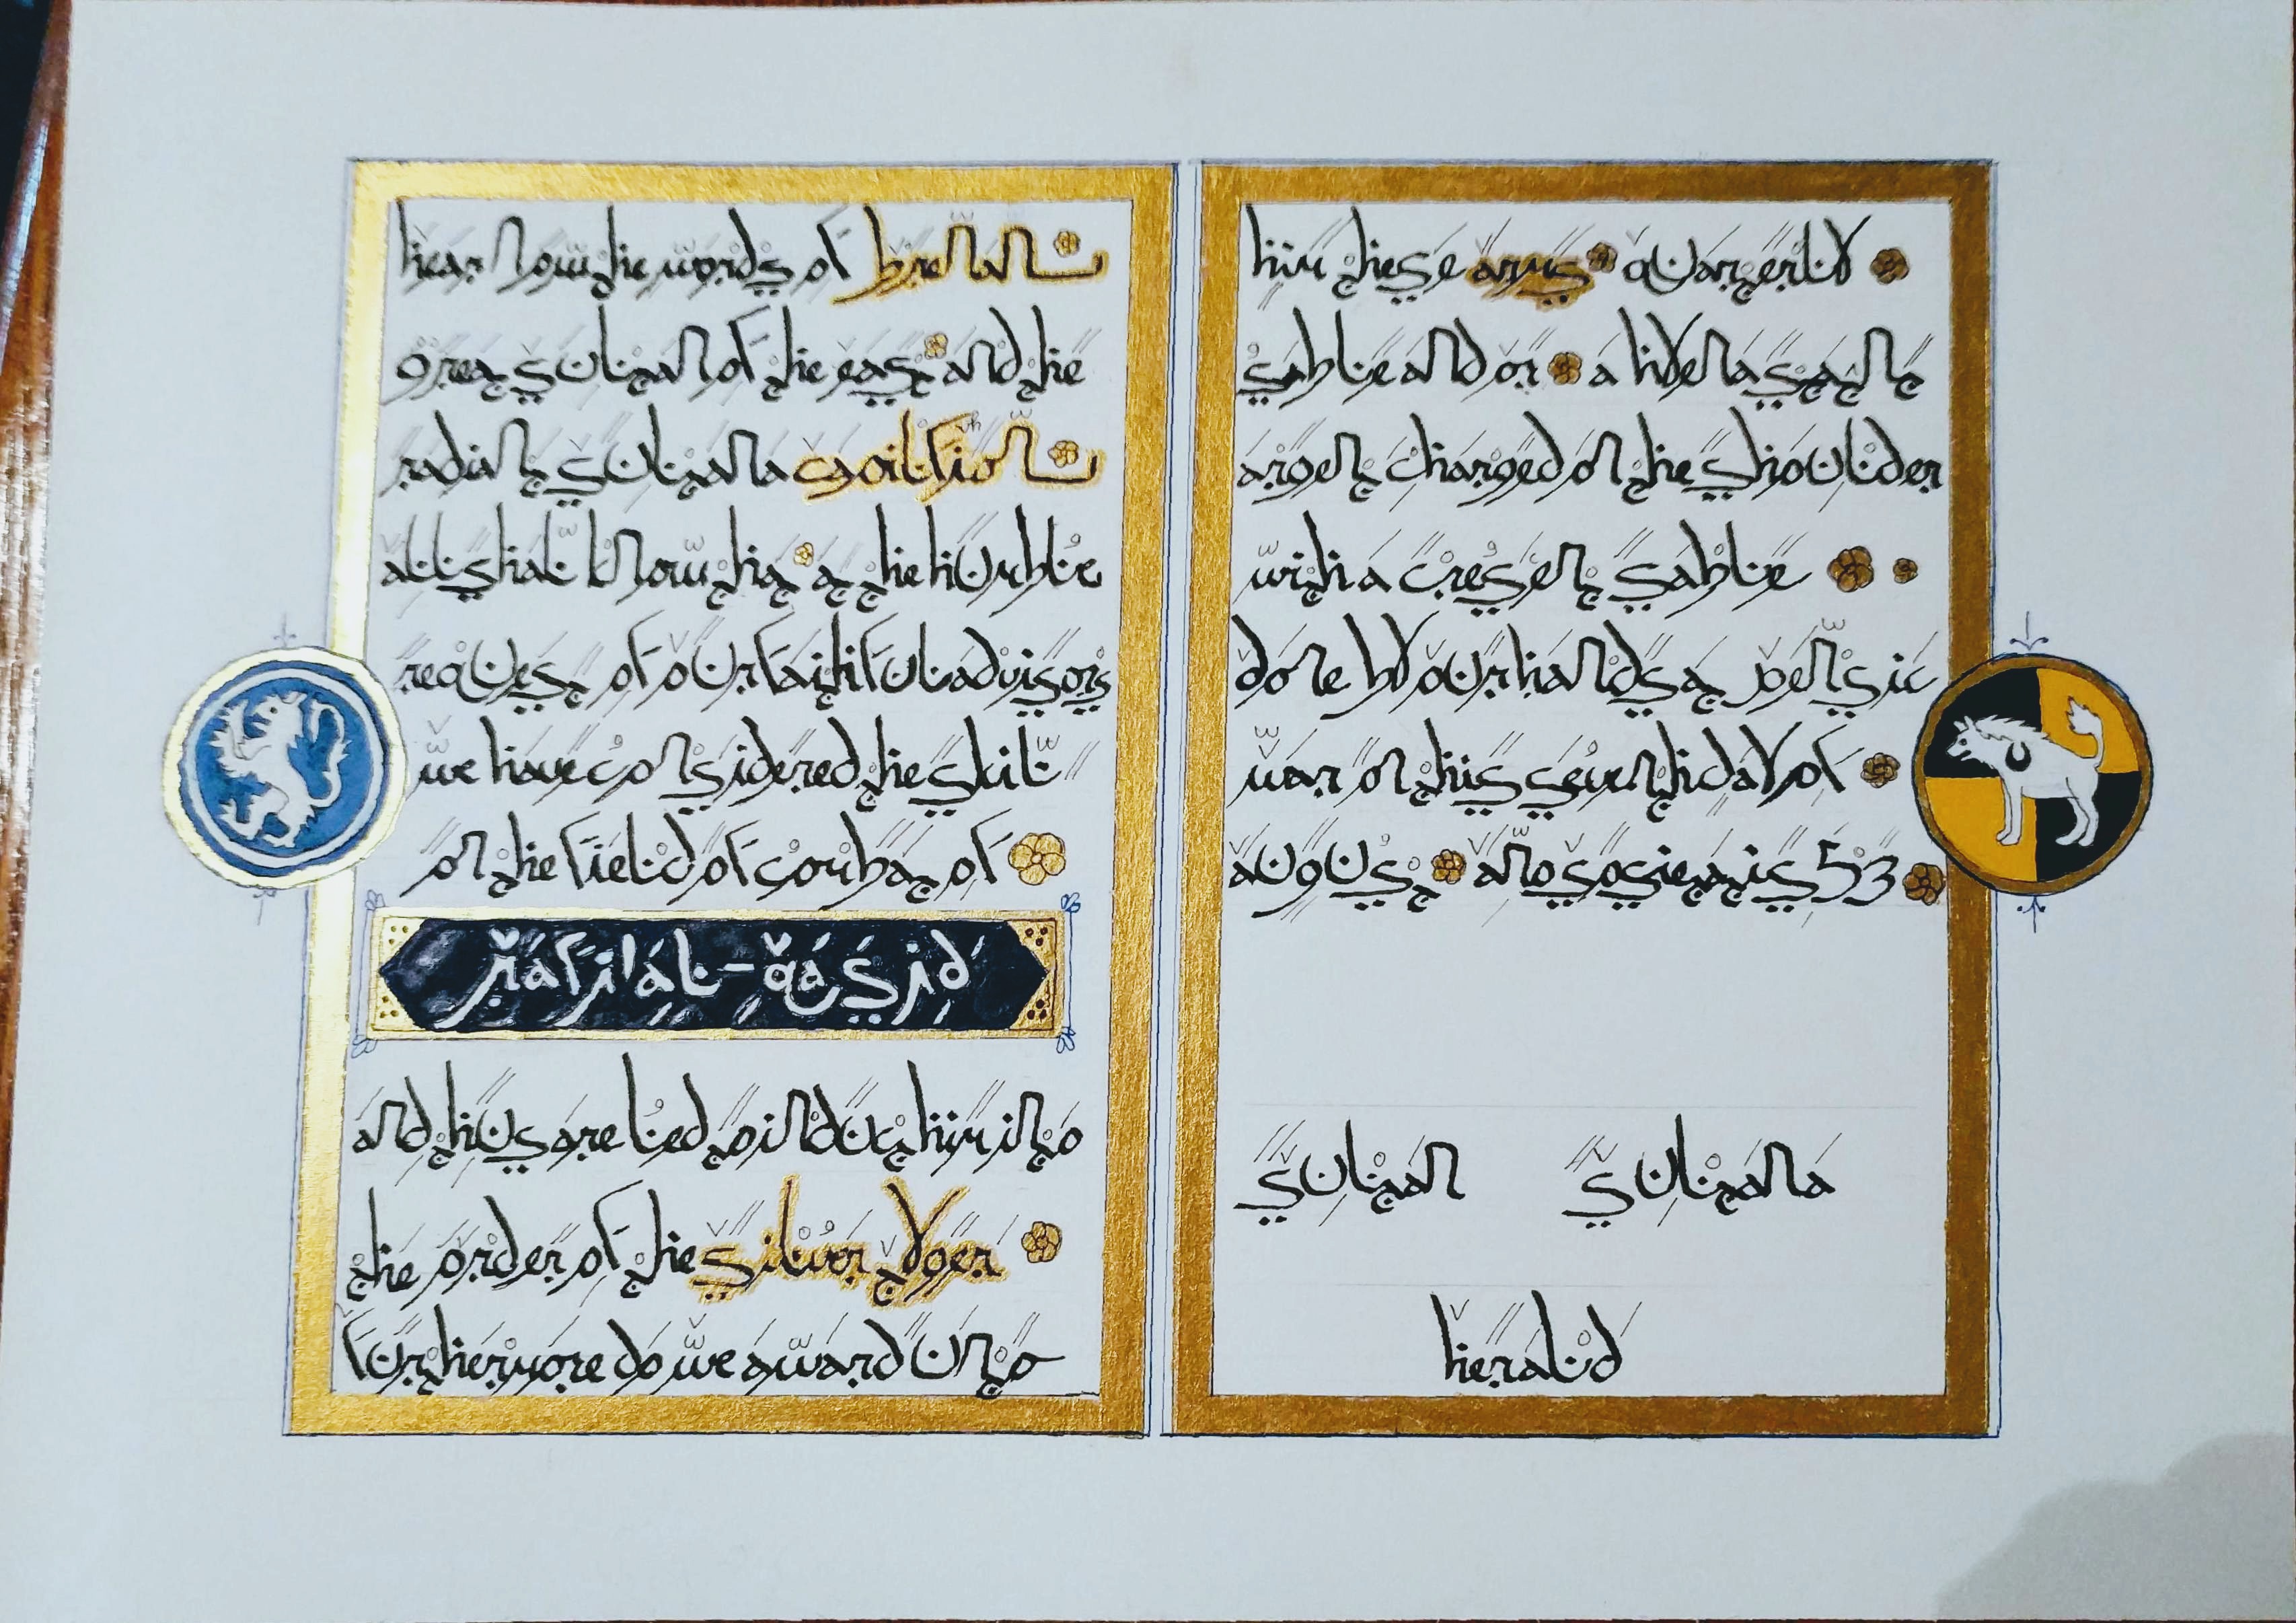 hear now the words of brennan
great sultan of the east and the
radiant sultana caoilfhionn
all shall know that at the humble
request of our faithful advisors
we have considered the skill
on the field of combat of
rafi' al-qasid
and thus are led to induct him into
the order of the silver tyger
furthermore do we award unto
him these arms quarterly
sable and or a hyena statant
argent charged on the shoulder
with a crescent sable
done by our hands at pennsic
war on this seventh day of
august anno societatis 53
sultan sultana
herald